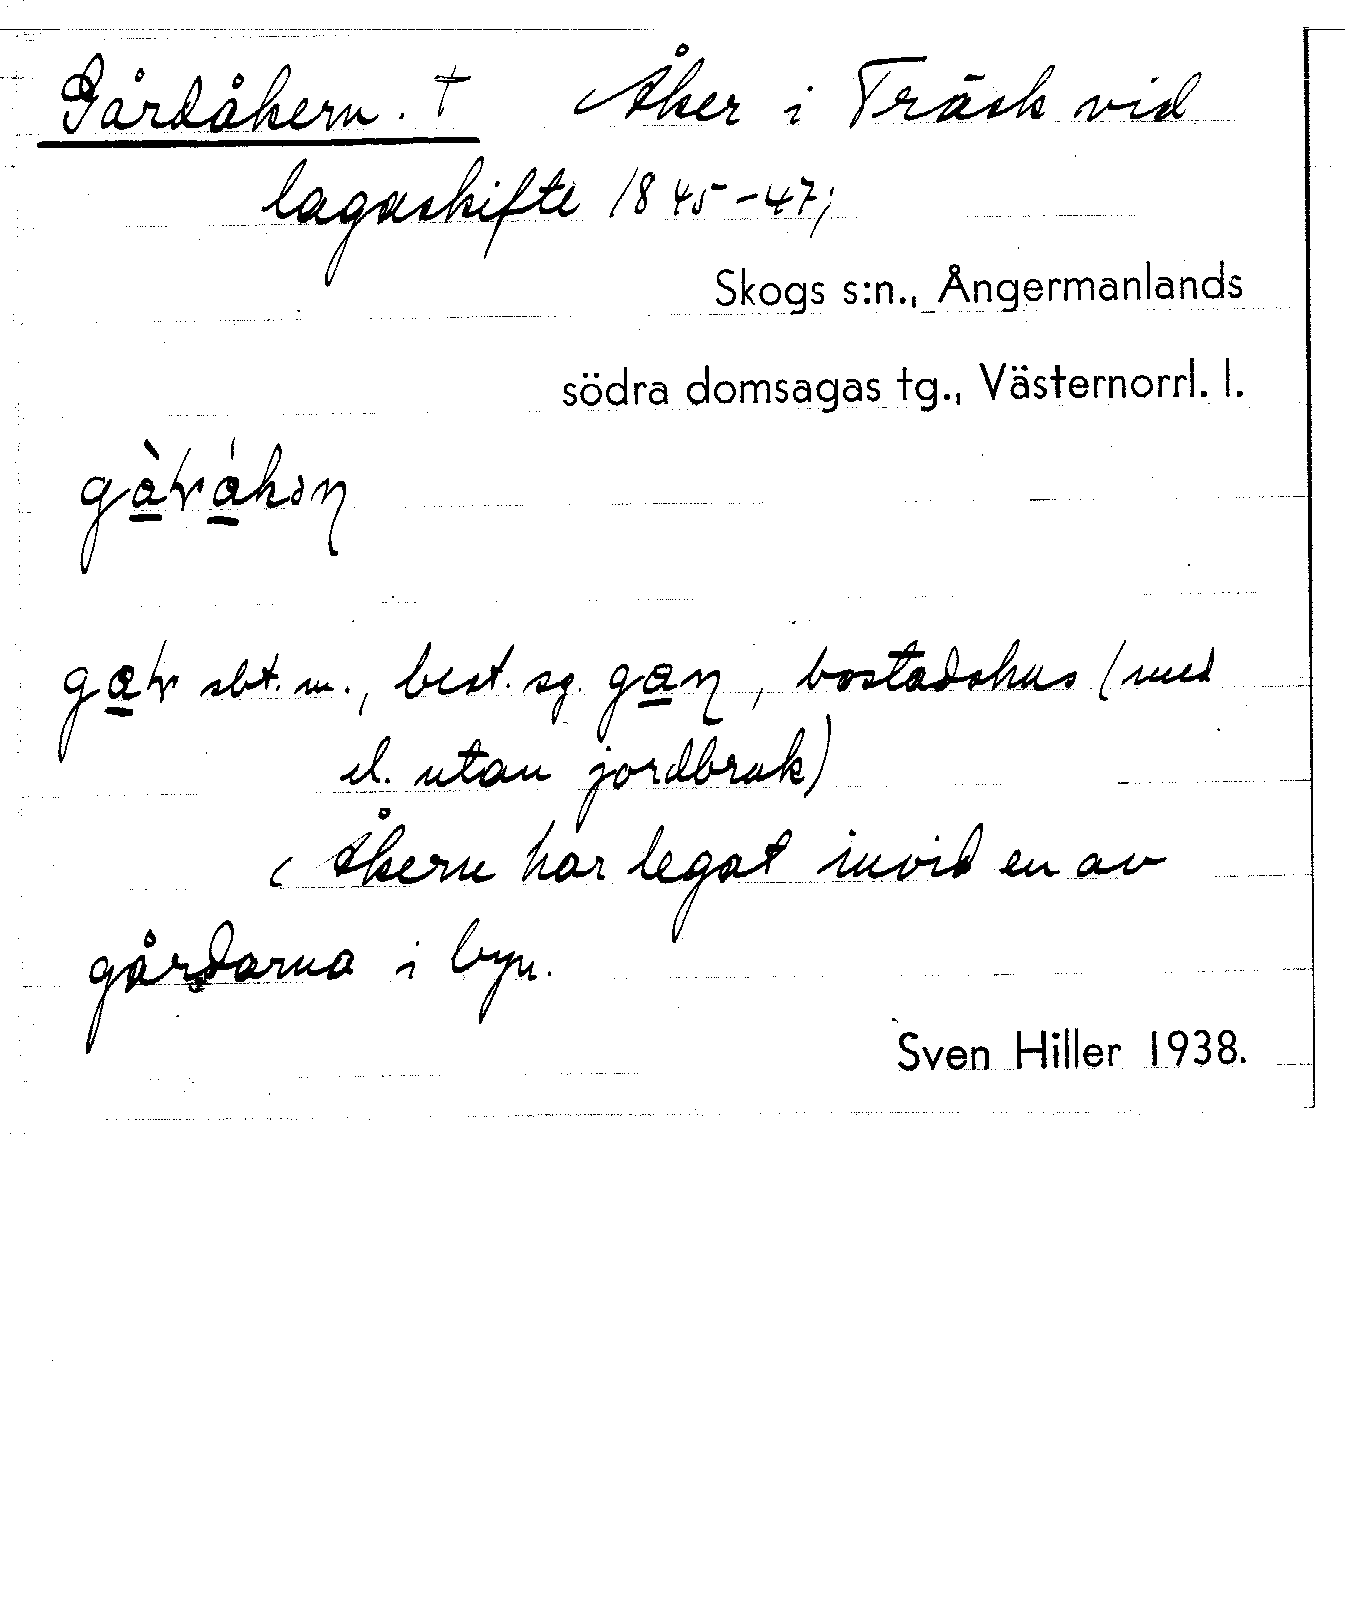 Gårdåkern. † Åker i Träsk vid
lagaskifte 1845-47;
Skogs s:n., Ångermanlands
södra domsagas tg., Västernorrl. l.
sbt. m., best. sg. , bostadshus (med
el. utan jordbruk)
Åkern har legat invid en av
gårdarna i byn.
Sven Hiller 1938.